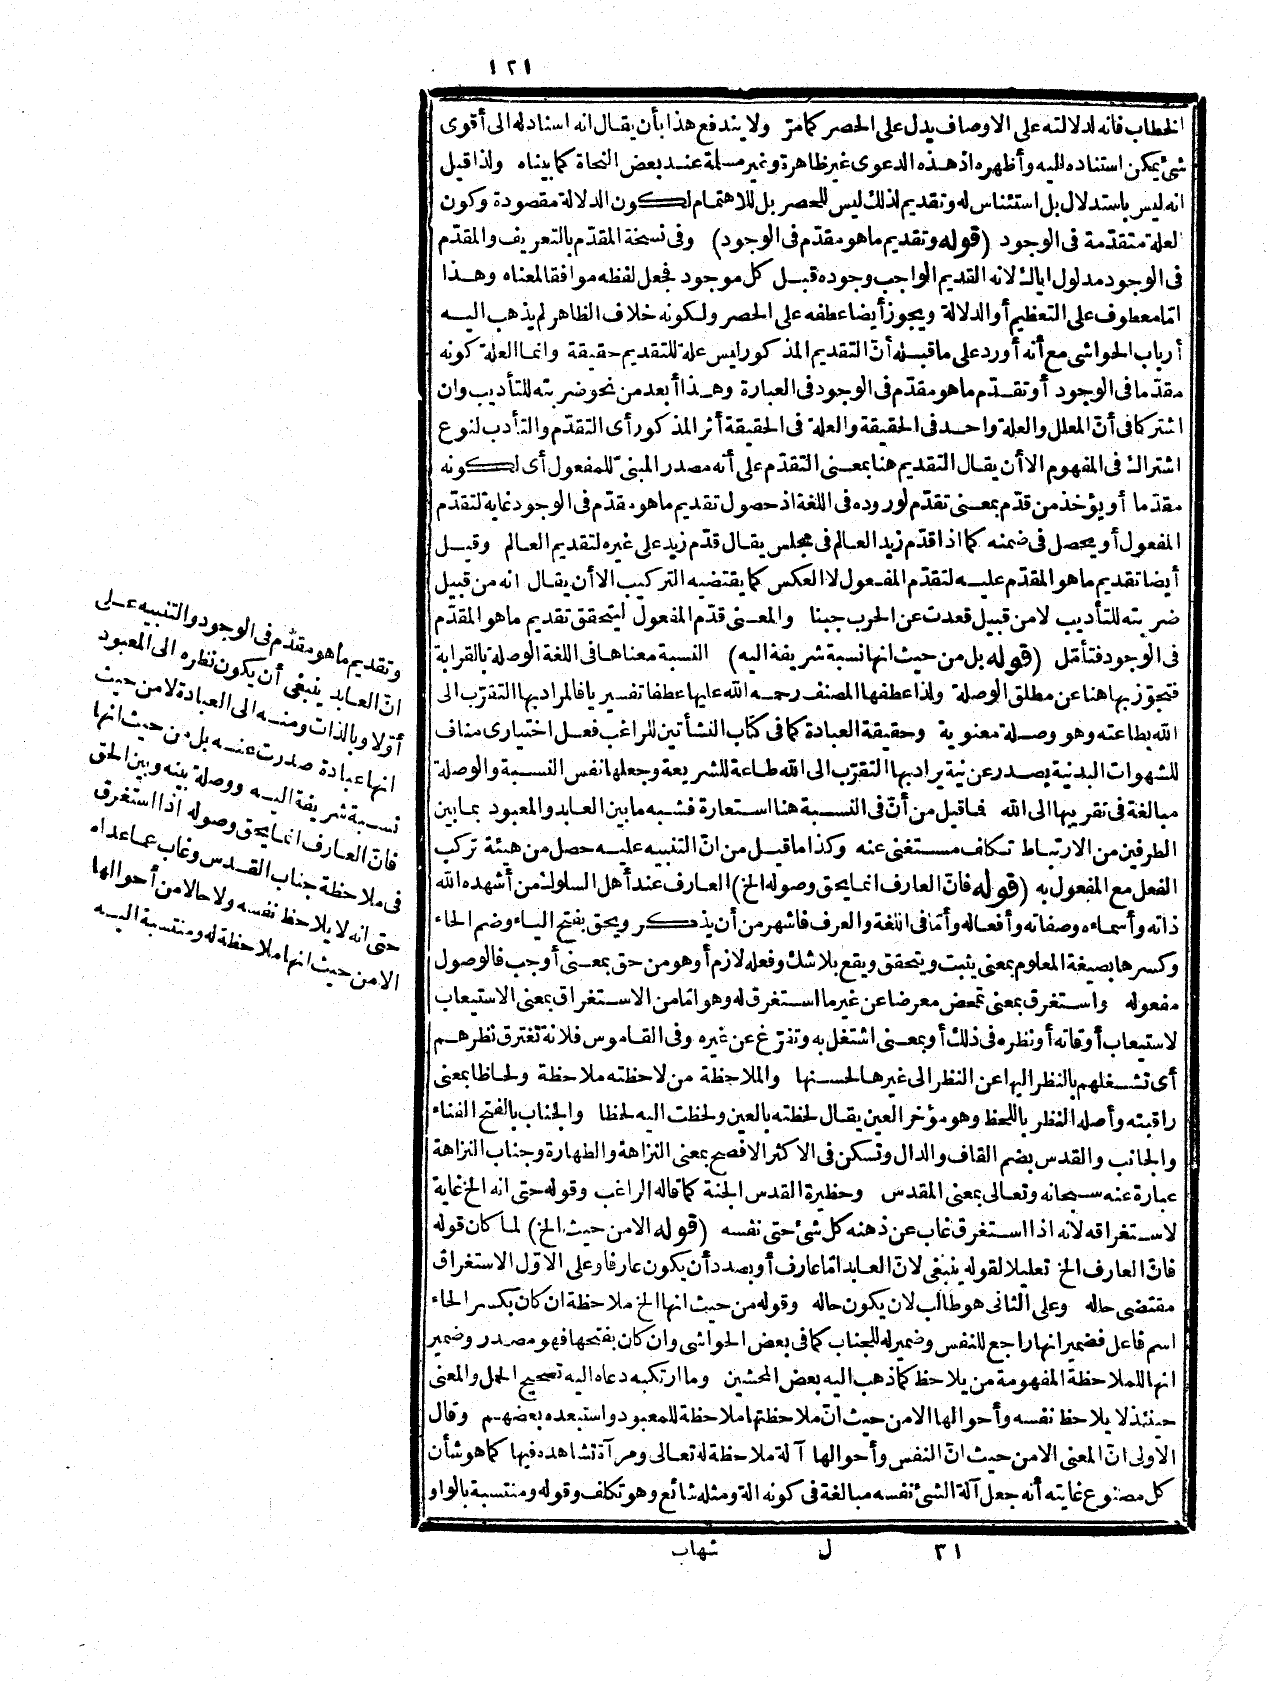 ١٢١
الخطاب فانه لدلالته على الاوصاف يدل على الحصر كمامرّ ولا يندفع هذا بأن يقال انه اسناد له الى أقوى
شئ يمكن استناده اليه وأظهره اذ هذه الدعوى غير ظاهرة وغير مسلمة عند بعض النحاة كما بيناه ولذا قيل
انه ليس باستدلال بل استئناس له وتقديم لذلك ليس للحصر بل للاهتمام لكون الدلالة مقصودة وكون
لعلة متقدّمة فى الوجود (قوله وتقديم ما هو مقدّم فى الوجود) وفى نسخة المقدّم بالتعريف والمقدّم
فى الوجود مدلول اياك لانه القديم الواجب وجوده قبل كل موجود فجعل لفظه موافقا لمعناه وهذا
امّا معطوف على التعظيم أو الدلالة ويجوز أيضا عطفه على الحصر ولكونه خلاف الظاهر لم يذهب اليه
أرباب الحواشى مع أنه أورد على ما قبله أنّ التقديم المذكور ليس علة للتقديم حقيقة وانما العلة كونه
مقدّما فى الوجود أو تقدّم ما هو مقدّم فى الوجود فى العبارة وهذا أبعد من نحو ضربته للتأديب وان
اشتركا فى أنّ المعلل والعلة واحد فى الحقيقة والعلة فى الحقيقة أثر المذكور أى التقدّم والتأدب لنوع
اشتراك فى المفهوم الا أن يقال التقديم هنا بمعنى التقدّم على أنه مصدر المبنىّ للمفعول أى لكونه
مقدّما أو يؤخذ من قدّم بمعنى تقدّم لوروده فى اللغة اذ حصول تقديم ما هو مقدّم فى الوجود غاية لتقدّم
المفعول أو يحصل فى ضمنه كما اذا قدّم زيد العالم فى مجلس يقال قدّم زيد على غيره لتقديم العالم وقيل
أيضا تقديم ما هو المقدّم عليه لتقدّم المفعول لا العكس كما يقتضيه التركيب الا أن يقال انه من قبيل
ضربته للتأديب لا من قبيل قعدت عن الحرب جبنا والمعنى قدّم المفعول ليتحقق تقديم ما هو المقدّم
فى الوجود فتأمّل (قوله بل من حيث انها نسبة شريفة اليه) النسبة معناها فى اللغة الوصلة بالقرابة
فتجوّز بها هنا عن مطلق الوصلة ولذا عطفها المصنف رحمه الله عليها عطفا تفسيريا فالمراد بها التقرّب الى
الله بطاعته وهو وصلة معنوية وحقيقة العبادة كما فى كتاب النشأتين للراغب فعل اختيارى مناف
للشهوات البدنية يصدر عن نية يراد بها التقرّب الى الله طاعة للشريعة وجعلها نفس النسبة والوصلة
مبالغة فى تقريبها الى الله فما قيل من أنّ فى النسبة هنا استعارة فشبه ما بين العابد والمعبود بما بين
الطرفين من الارتباط تكاف مستغنى عنه وكذا ما قيل من انّ التنبيه عليه حصل من هيئة تركب
الفعل مع المفعول به (قوله فانّ العارف انما يحق وصوله الخ) العارف عند أهل السلوك من أشهده الله
ذاته وأسماءه وصفاته وأفعاله وأمّا فى اللغة والعرف فاشهر من أن يذكر ويحق بفتح الياء وضم الحاء
وكسرها بصيغة المعلوم بمعنى يثبت ويتحقق ويقع بلا شك وفعله لازم أو هو من حق بمعنى أوجب فالوصول
مفعوله واستغرق بمعنى تمحض معرضا عن غير ما استغرق له وهو امّا من الاستغراق بمعنى الاستيعاب
لاستيعاب أوقاته أو نظره فى ذلك أو بمعنى اشتغل به وتفرّغ عن غيره وفى القاموس فلانة تغترق نظرهم
أى تشغلهم بالنظر اليها عن النظر الى غيرها لحسنها والملاحظة من لاحظته ملاحظة ولحاظا بمعنى
راقبته وأصله النظر باللحظ وهو مؤخر العين يقال لحظته بالعين ولحظت اليه لحظا والجناب بالفتح الفناء
والجانب والقدس بضم القاف والدال وتسكن فى الاكثر الافصح بمعنى النزاهة والطهارة وجناب النزاهة
عبارة عنه سبحانه وتعالى بمعنى المقدس وحظيرة القدس الجنة كما قاله الراغب وقوله حتى انه الخ غاية
لاستغراقه لانه اذا استغرق غاب عن ذهنه كل شئ حتى نفسه (قوله الا من حيث الخ) لما كان قوله
فانّ العارف الخ تعليلا لقوله ينبغى لانّ العابد امّا عارف أو بصدد أن يكون عارفا وعلى الاوّل الاستغراق
مقتضى حاله وعلى الثانى هو طالب لان يكون حاله وقوله من حيث انها الخ ملاحظة ان كان بكسر الحاء
اسم فاعل فضمير انها راجع للنفس وضمير له للجناب كما فى بعض الحواشى وان كان بفتحها فهو مصدر وضمير
انها للملاحظة المفهومة من يلاحظ كما ذهب اليه بعض المحشين وما ارتكبه دعاه اليه تصحيح الحمل والمعنى
حينئذ لا يلاحظ نفسه وأحوالها الا من حيث انّ ملاحظتها ملاحظة للمعبود واستبعده بعضهم وقال
الاولى انّ المعنى الا من حيث انّ النفس وأحوالها آلة ملاحظة له تعالى ومرآة تشاهده فيها كما هو شأن
كل مصنوع غايته أنه جعل آلة الشئ نفسه مبالغة فى كونه الة ومثله شائع وهو تكلف وقوله ومنتسبة بالواو
وتقديم ما هو مقدّم فى الوجود والتنبيه على
انّ العابد ينبغى أن يكون نظره الى المعبود
أوّلا وبالذات ومنه الى العبادة لا من حيث
انها عبادة صدرت عنه بل من حيث انها
نسبة شريفة اليه ووصلة بينه وبين الحق
فانّ العارف انما يحق وصوله اذا استغرق
فى ملاحظة جناب القدس وغاب عما عداه
حتى انه لا يلاحظ نفسه ولا حالا من أحوالها
الا من حيث انها ملاحظة له ومنتسبة اليه
٣١ ل شهاب